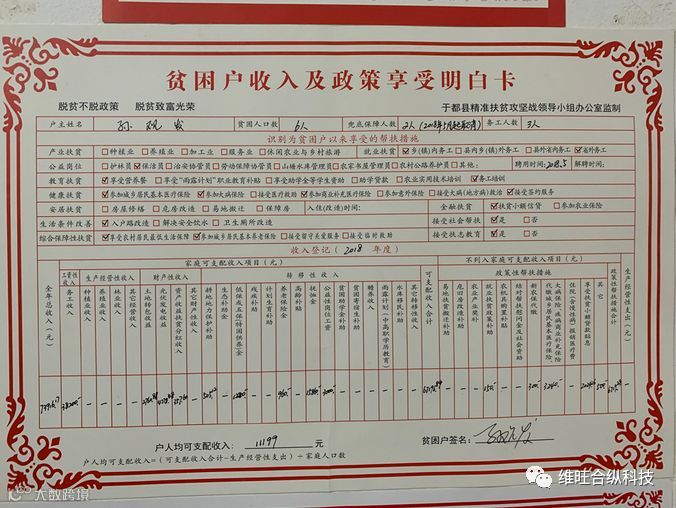 贫困户收入及政策享受明白卡
脱贫不脱政策 脱贫致富光荣 于都县精准扶贫攻坚战领导小组办公室监制
户主姓名 孙观发 贫困人口数 6人 兜底保障人数 2人 务工人数 3人
识别为贫困户以来享受的帮扶措施
产业扶贫 □种植业 □养殖业 □加工业 □服务业 □休闲农业与乡村旅游 就业扶贫 ☑乡(镇)内务工 □县内乡(镇)外务工 □县外省内务工 ☑省外务工
公益岗位 □护林员 ☑保洁员 □治安协管员 □劳动保障协管员 □山塘水库管理员 □农家书屋管理员 □农村公路养护员 □其他: 聘用时间:2018.5 解聘时间:
教育扶贫 ☑享受营养餐 □享受“雨露计划”职业教育补贴 □享受助学金等学生资助 □助学贷款 □农业实用技术培训 ☑务工培训
健康扶贫 ☑参加城乡居民基本医疗保险 ☑参加大病保险 □接受医疗救助 ☑参加商业补充医疗保险 □参加意外保险 □接受大病(地方病)救治 ☑接受签约服务
安居扶贫 □房屋修缮 □危房改造 □易地搬迁 □保障房 入住(改造)时间: 金融扶贫 ☑扶贫小额信贷 □参加农业保险
生活条件改善 ☑入户路改造 □解决安全饮水 □卫生厕所改造 接受社会帮扶 ☑是 □否
综合保障性扶贫 ☑享受农村居民最低生活保障 ☑参加城乡居民基本养老保险 □接受留守关爱服务 □接受临时救助 接受扶志教育 ☑是 □否
收入登记(2018年度)
家庭可支配收入项目(元) 不列入家庭可支配收入项目(元)
工资性收入 生产经营性收入 财产性收入 转移性收入 政策性帮扶措施
全年总收入(元)
务工收入
种植业收入
养殖业收入
林业收入
其它经营收入
土地转包收益
光伏发电收益
资产收益扶贫分红收入
其它财产性收入
耕地地力保护补助
生态补助
低保或五保(特困供养)金
残疾补助
计划生育补助
养老保险金
高龄补贴
抚恤金
公益性岗位工资
贫困助学金补助
贫困寄宿生补助
赡养收入
雨露计划(中高职学历教育)
水库移民补助
其它转移性收入
可支配收入合计
易地扶贫搬迁补助
危旧房改造补助
农业产业奖补
就业扶贫政策补助
农机具购置补贴
结对帮扶慰问金及社会资助
新农保代缴
代缴城乡居民基本医疗保险
大病保险、疾病商业补充保险
住院(含慢性病)报销医疗费
享受扶贫小额贷款贴息
其它
政策性帮扶措施合计
生产经营性支出(元)
户人均可支配收入: 11199 元 贫困户签名:
户人均可支配收入=(可支配收入合计-生产经营性支出)÷家庭人口数
大数跨境
维旺合纵科技